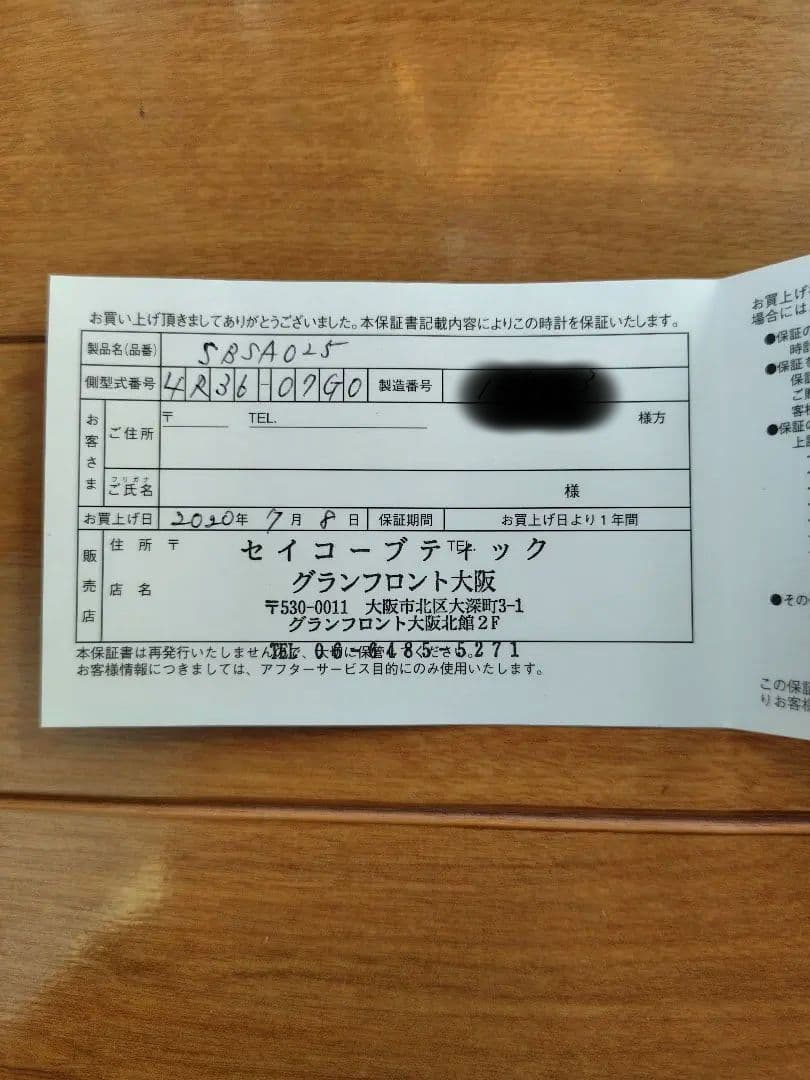 お買い上げ頂きましてありがとうございました。本保証書記載内容によりこの時計を保証いたします。
製品名(品番) SBSA025
側型式番号 4R36-07G0 製造番号
お客さま
ご住所 〒 TEL. 様方
フリガナ
ご氏名 様
お買上げ日 2020年 7月 8日 保証期間 お買上げ日より1年間
販売店
住所 〒 TEL.
セイコーブティック
店名 グランフロント大阪
〒530-0011 大阪市北区大深町3-1
グランフロント大阪北館2F
TEL 06-6485-5271
本保証書は再発行いたしませんので、大切に保管してください。
お客様情報につきましては、アフターサービス目的にのみ使用いたします。
お買上げ
場合には
●保証の
時計
●保証を
保証
ご購
客様
●保証の
上記
●その
この保証
りお客様